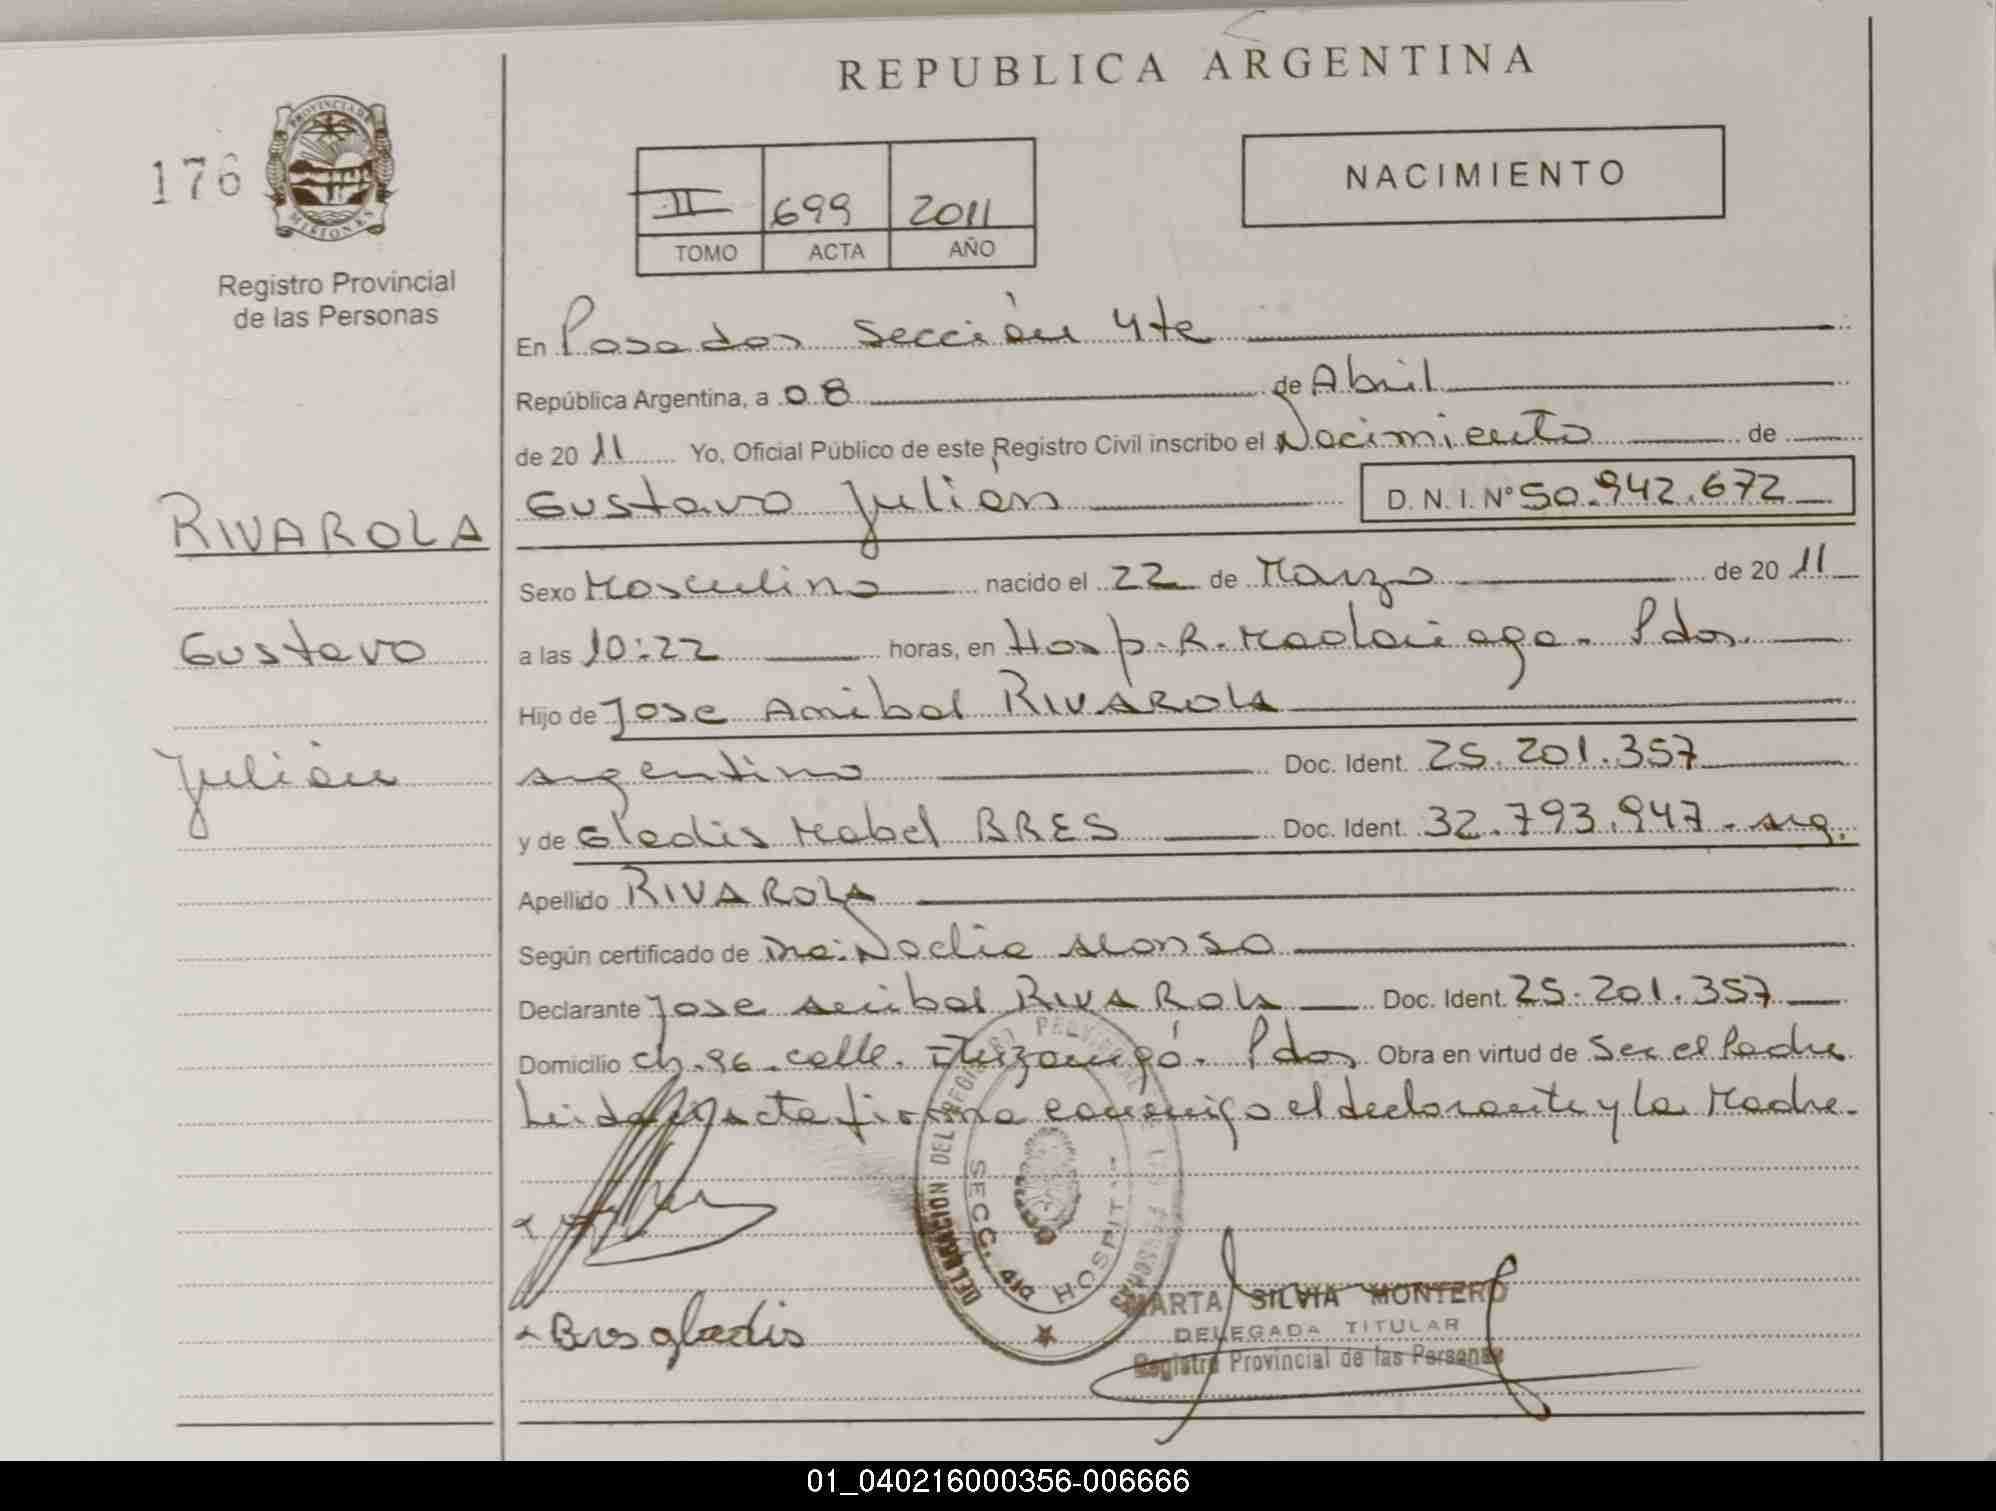 REPUBLICA ARGENTINA
176
PROVINCIA DE MISIONES
Registro Provincial
de las Personas
II 699 2011
TOMO ACTA AÑO
NACIMIENTO
RIVAROLA
Gustavo
Julián
En Posadas Sección 4ta
República Argentina, a 08 de Abril
de 2011 Yo, Oficial Público de este Registro Civil inscribo el Nacimiento de
Gustavo Julián D.N.I. Nº 50.942.672
Sexo Masculino nacido el 22 de Marzo de 2011
a las 10:22 horas, en Hosp. R. Madariaga. Pdas.
Hijo de Jose Anibal RIVAROLA
argentino Doc. Ident. 25.201.357
y de Gladis Mabel BRES Doc. Ident. 32.793.947 - arg.
Apellido RIVAROLA
Según certificado de Dra. Nadia Alonso
Declarante Jose Anibal RIVAROLA Doc. Ident. 25.201.357
Domicilio ch. 96. calle. Ituzaingó. Pdas Obra en virtud de Ser el Padre
Leida acta firma conmigo el declarante y la Madre.
DELEGACION DEL REGISTRO PROVINCIAL DE LAS PERSONAS
SECC. 4ta HOSPIT
Bres gladis
MARTA SILVIA MONTERO
DELEGADA TITULAR
Registro Provincial de las Personas
01_040216000356-006666